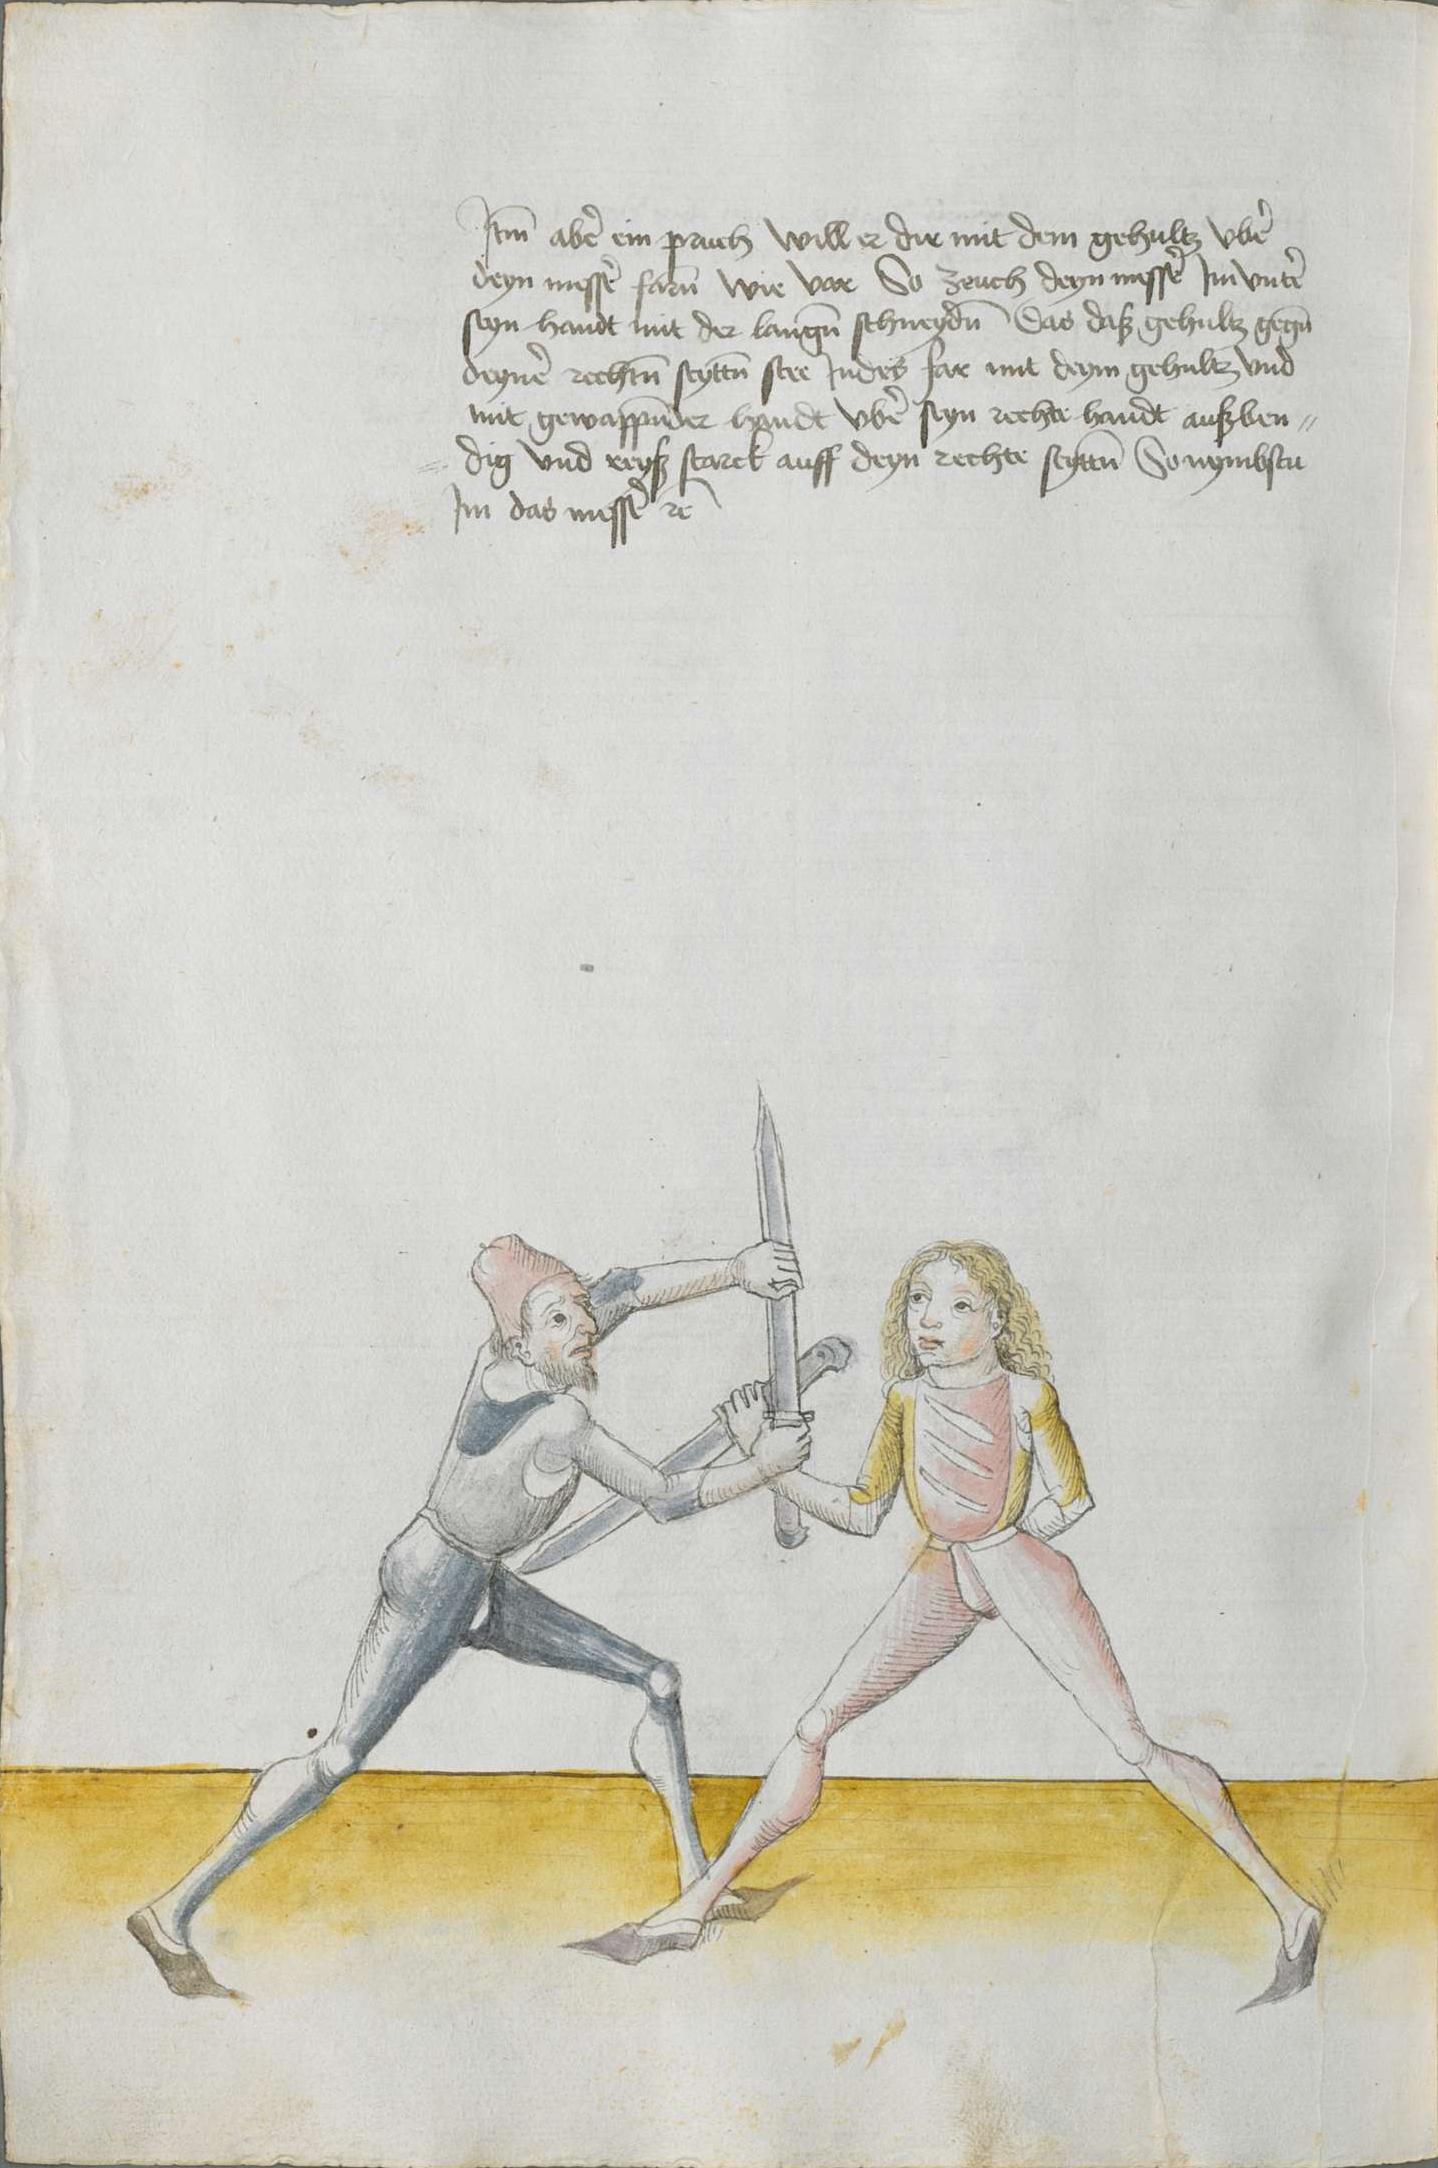 Itm̄ abe᷑ ein pruch Will er dir mit dem gehultz vbe᷑
deyn messe᷑ farn̄ Wie vor So zeuch deyn messe᷑ Im vnte᷑
seyn handt mit der langn̄ schneydn̄ Das daß gehultz gegn̄
deyne᷑ rechtn̄ seyttn̄ stee Indes far mit deym gehultz vnd
mit gewappn̄der handt vbe᷑ seyn rechte handt außben〃
dig vnd reyß starck auff deyn rechte seyttn̄ So nymbstu
Im das messe᷑ rc̄